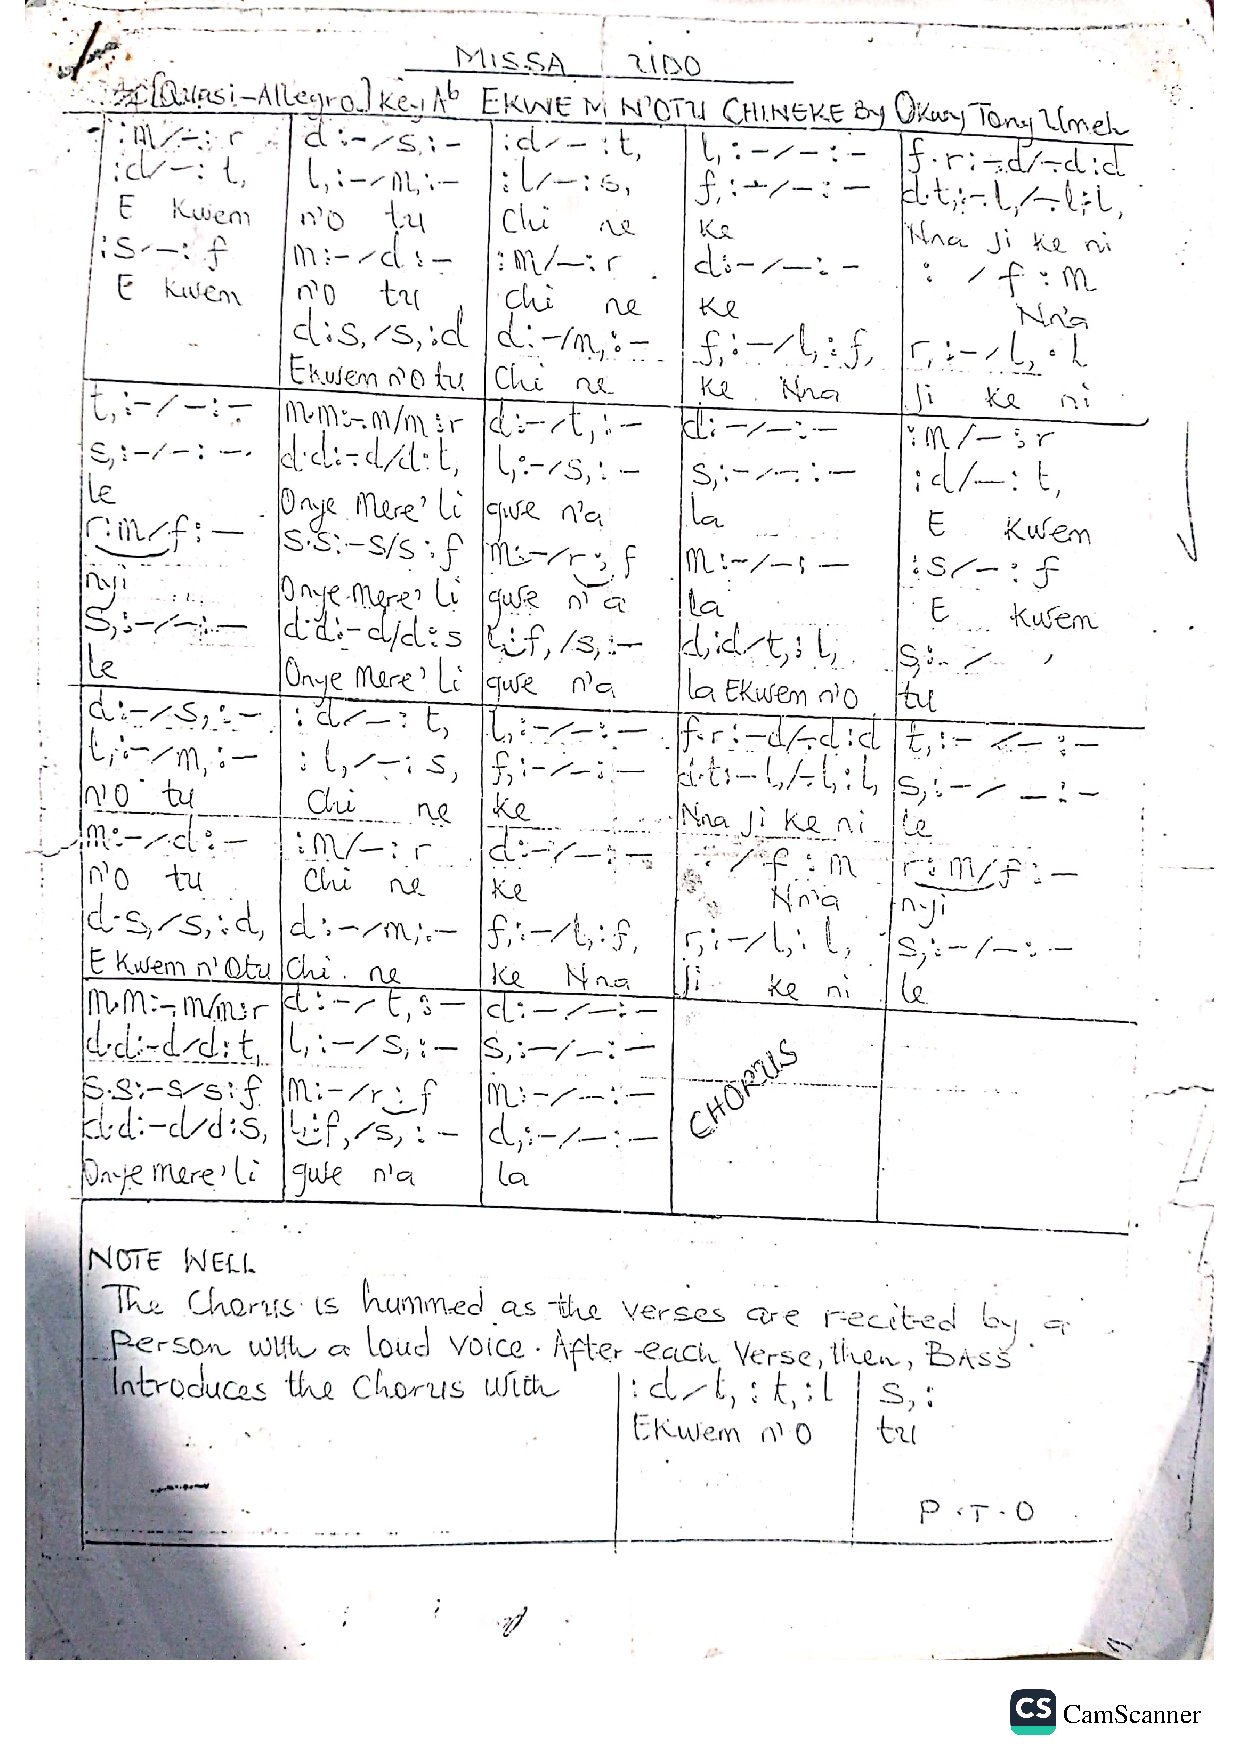 MISSA RIDO
[Quasi-Allegro] Key Ab EKWE M N'OTU CHINEKE By Okwy Tony Umeh
:m/-:r | d:-/s,:- | :d/-:t, | l,:-/-:- | f.r:-.d/-.d:d
:d/-:t, | l,:-/m,:- | :l/-:s, | f,:-/-:- | d.t,:-.l,/-.l,:l,
E Kwem | n'O tu | Chi ne | ke | Nna Ji ke ni
:s/-:f | m:-/d:- | :m/-:r | d:-/-:- | : /f:m
E kwem | n'O tu | chi ne | ke | Nn'a
d:s,/s,:d | d:-/m,:- | f,:-/l,:f, | r,:-/l,:l
Ekwem n'O tu | Chi ne | ke Nna | Ji ke ni
t,:-/-:- | m.m:-.m/m:r | d:-/t,:- | d:-/-:- | :m/-:r
s,:-/-:- | d.d:-.d/d:t, | l,:-/s,:- | s,:-/-:- | :d/-:t,
le | Onye mere' li | gwe n'a | la | E Kwem
r:m/f:- | s.s:-s/s:f | m:-/r:f | m:-/-:- | :s/-:f
nyi | Onye mere' li | gwe n'a | la | E Kwem
s,:-/-:- | d.d:-d/d:s | l,:f,/s,:- | d,:d/t,:l, | s,:- /
le | Onye mere' li | gwe n'a | la Ekwem n'O | tu
d:-/s,:- | :d/-:t, | l,:-/-:- | f.r:-d/-.d:d | t,:-/-:-
l,:-/m,:- | :l,/-:s, | f,:-/-:- | d.t:-l,/-.l,:l, | s,:-/-:-
n'O tu | Chi ne | ke | Nna Ji ke ni | le
m:-/d:- | :m/-:r | d:-/-:- | : /f:m | r:m/f:-
n'O tu | Chi ne | ke | Nn'a | nyi
d.s,/s,:d, | d:-/m,:- | f,:-/l,:f, | r,:-/l,:l, | s,:-/-:-
E Kwem n'Otu | Chi ne | ke Nna | Ji ke ni | le
m.m:-.m/m:r | d:-/t,:- | d:-/-:-
d.d:-d/d:t, | l,:-/s,:- | s,:-/-:- | CHORUS
s.s:-s/s:f | m:-/r:f | m:-/-:-
d.d:-d/d:s, | l,:f,/s,:- | d,:-/-:-
Onye mere' li | gwe n'a | la
NOTE WELL
The Chorus is hummed as the verses are recited by a
Person with a loud voice. After each Verse, then, BASS
Introduces the Chorus with | :d/t,:t,:l | s,:
Ekwem n'O | tu
P.T.O
CS CamScanner